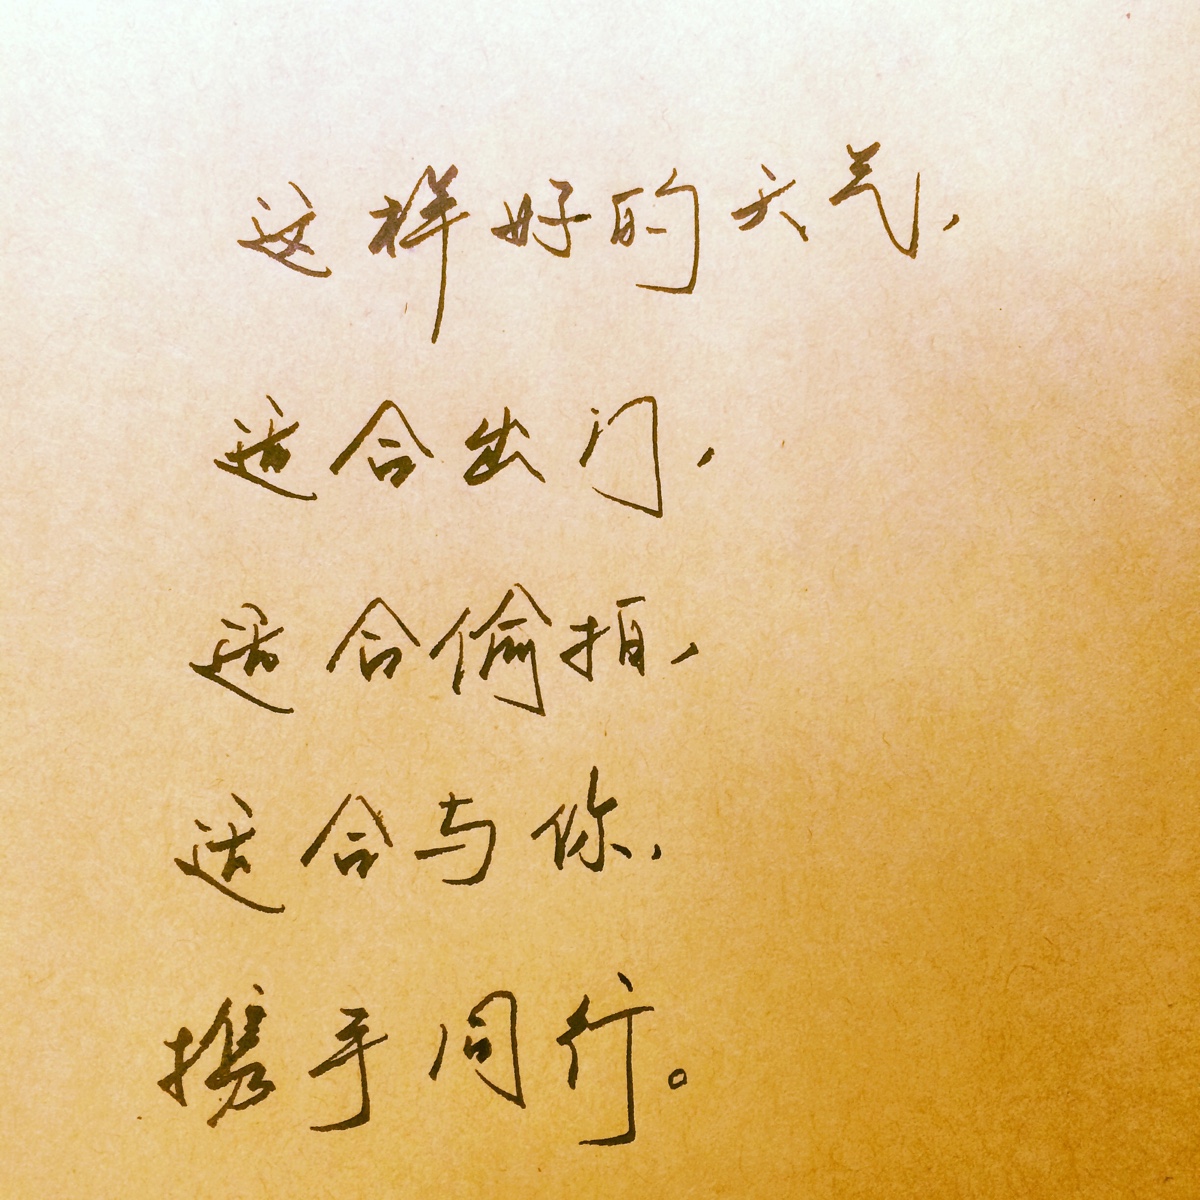 这样好的天气，
适合出门，
适合偷拍，
适合与你，
携手同行。